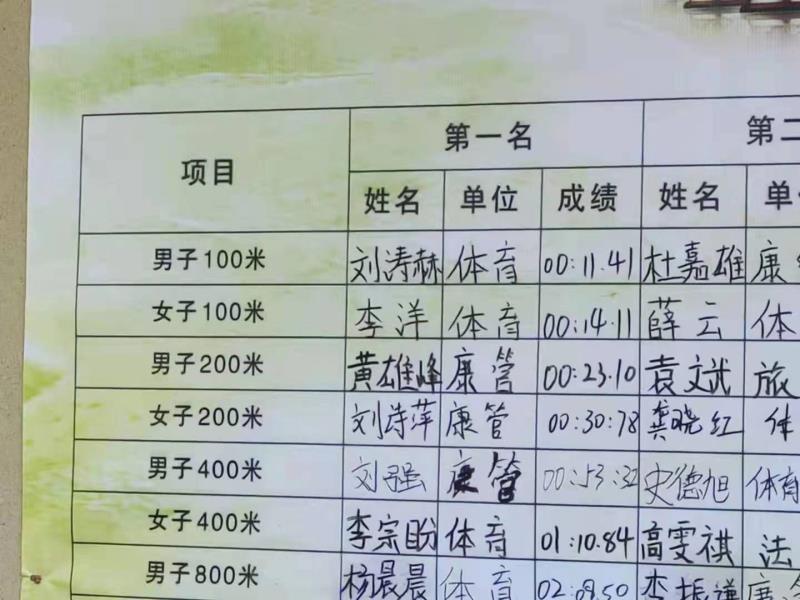 第一名 第二
项目 姓名 单位 成绩 姓名 单
男子100米 刘涛赫 体育 00:11.41 杜嘉雄 康
女子100米 李洋 体育 00:14.11 薛云 体
男子200米 黄雄峰 康管 00:23.10 袁文斌 旅
女子200米 刘诗萍 康管 00:30:78 龚晓红 体
男子400米 刘强 康管 00:53:32 史德旭 体育
女子400米 李宗盼 体育 01:10.84 高雯祺 法
男子800米 杨晨晨 体育 02:09.50 李振 康